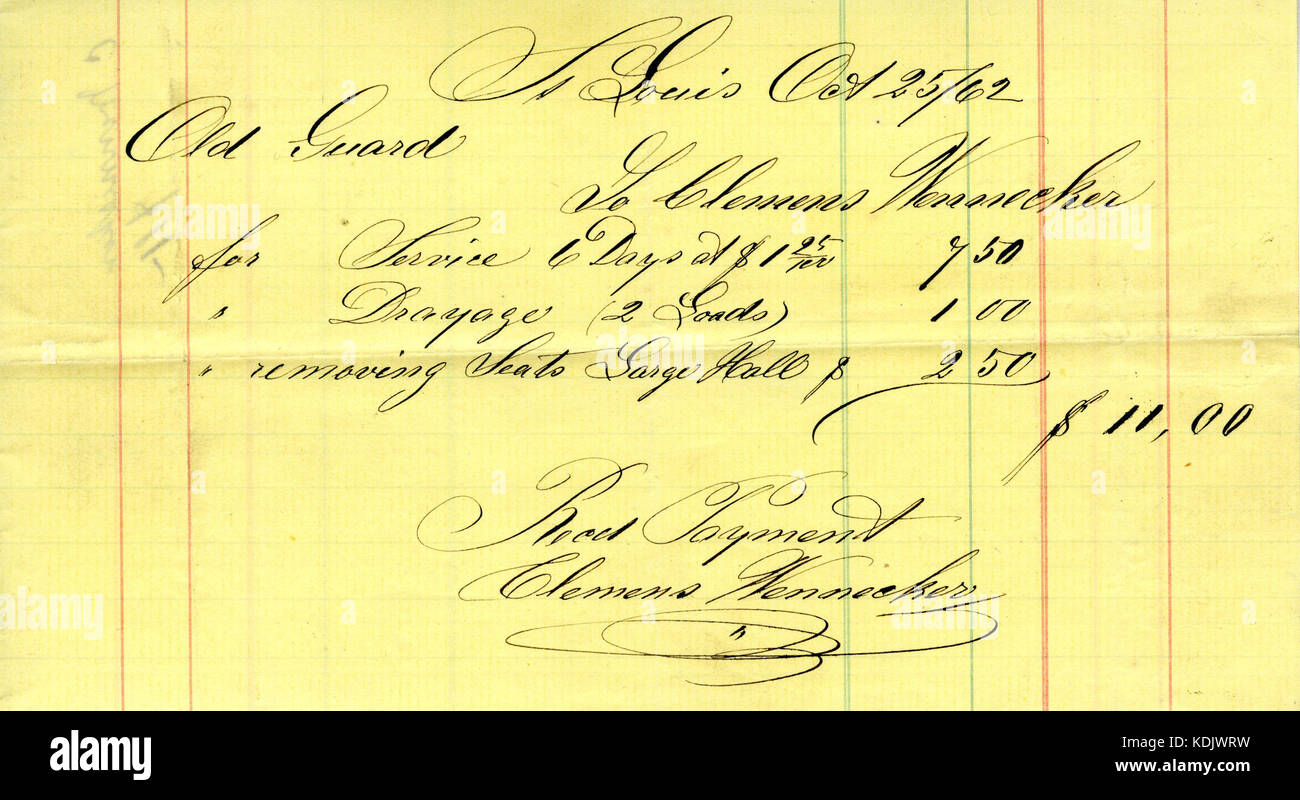 St Louis Oct 25/62
Old Guard
To Clemens Wennecker
for Service 6 Days at $1 25/100 7 50
" Drayage (2 Loads) 1 00
" removing Seats Large Hall $ 2 50
$ 11,00
Recd Payment
Clemens Wennecker
"
alamy
Image ID: KDJWRW
www.alamy.com